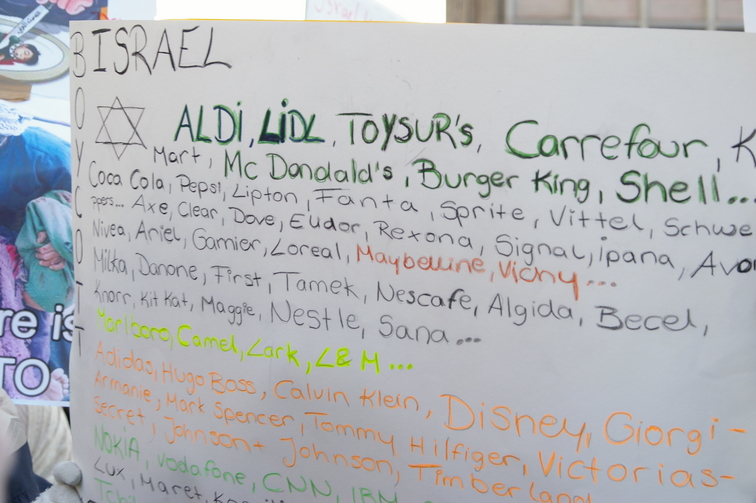 BOYCOTT
ISRAEL
ALDİ, LİDL, TOYSUR's, Carrefour, K
Mart, Mc Dandald's, Burger King, Shell...
Coca Cola, Pepsi, Lipton, Fanta, Sprite, Vittel, Schwe
ppers... Axe, Clear, Dove, Elidor, Rexona, Signal, ipana, Avo
Nivea, Ariel, Garnier, Loreal, Maybelline, Vichy...
Milka, Danone, First, Tamek, Nescafe, Algida, Becel,
Knorr, Kit Kat, Maggie, Nestle, Sana...
Marlboro, Camel, Lark, L&M...
Adidas, Hugo Boss, Calvin Klein, Disney, Giorgi-
Armanie, Mark Spencer, Tommy Hilfiger, Victorias-
Secret, Johnson+ Johnson, Timberland
NOKIA, vodafone, CNN, IBM
Lux, Maret,
re is
TO